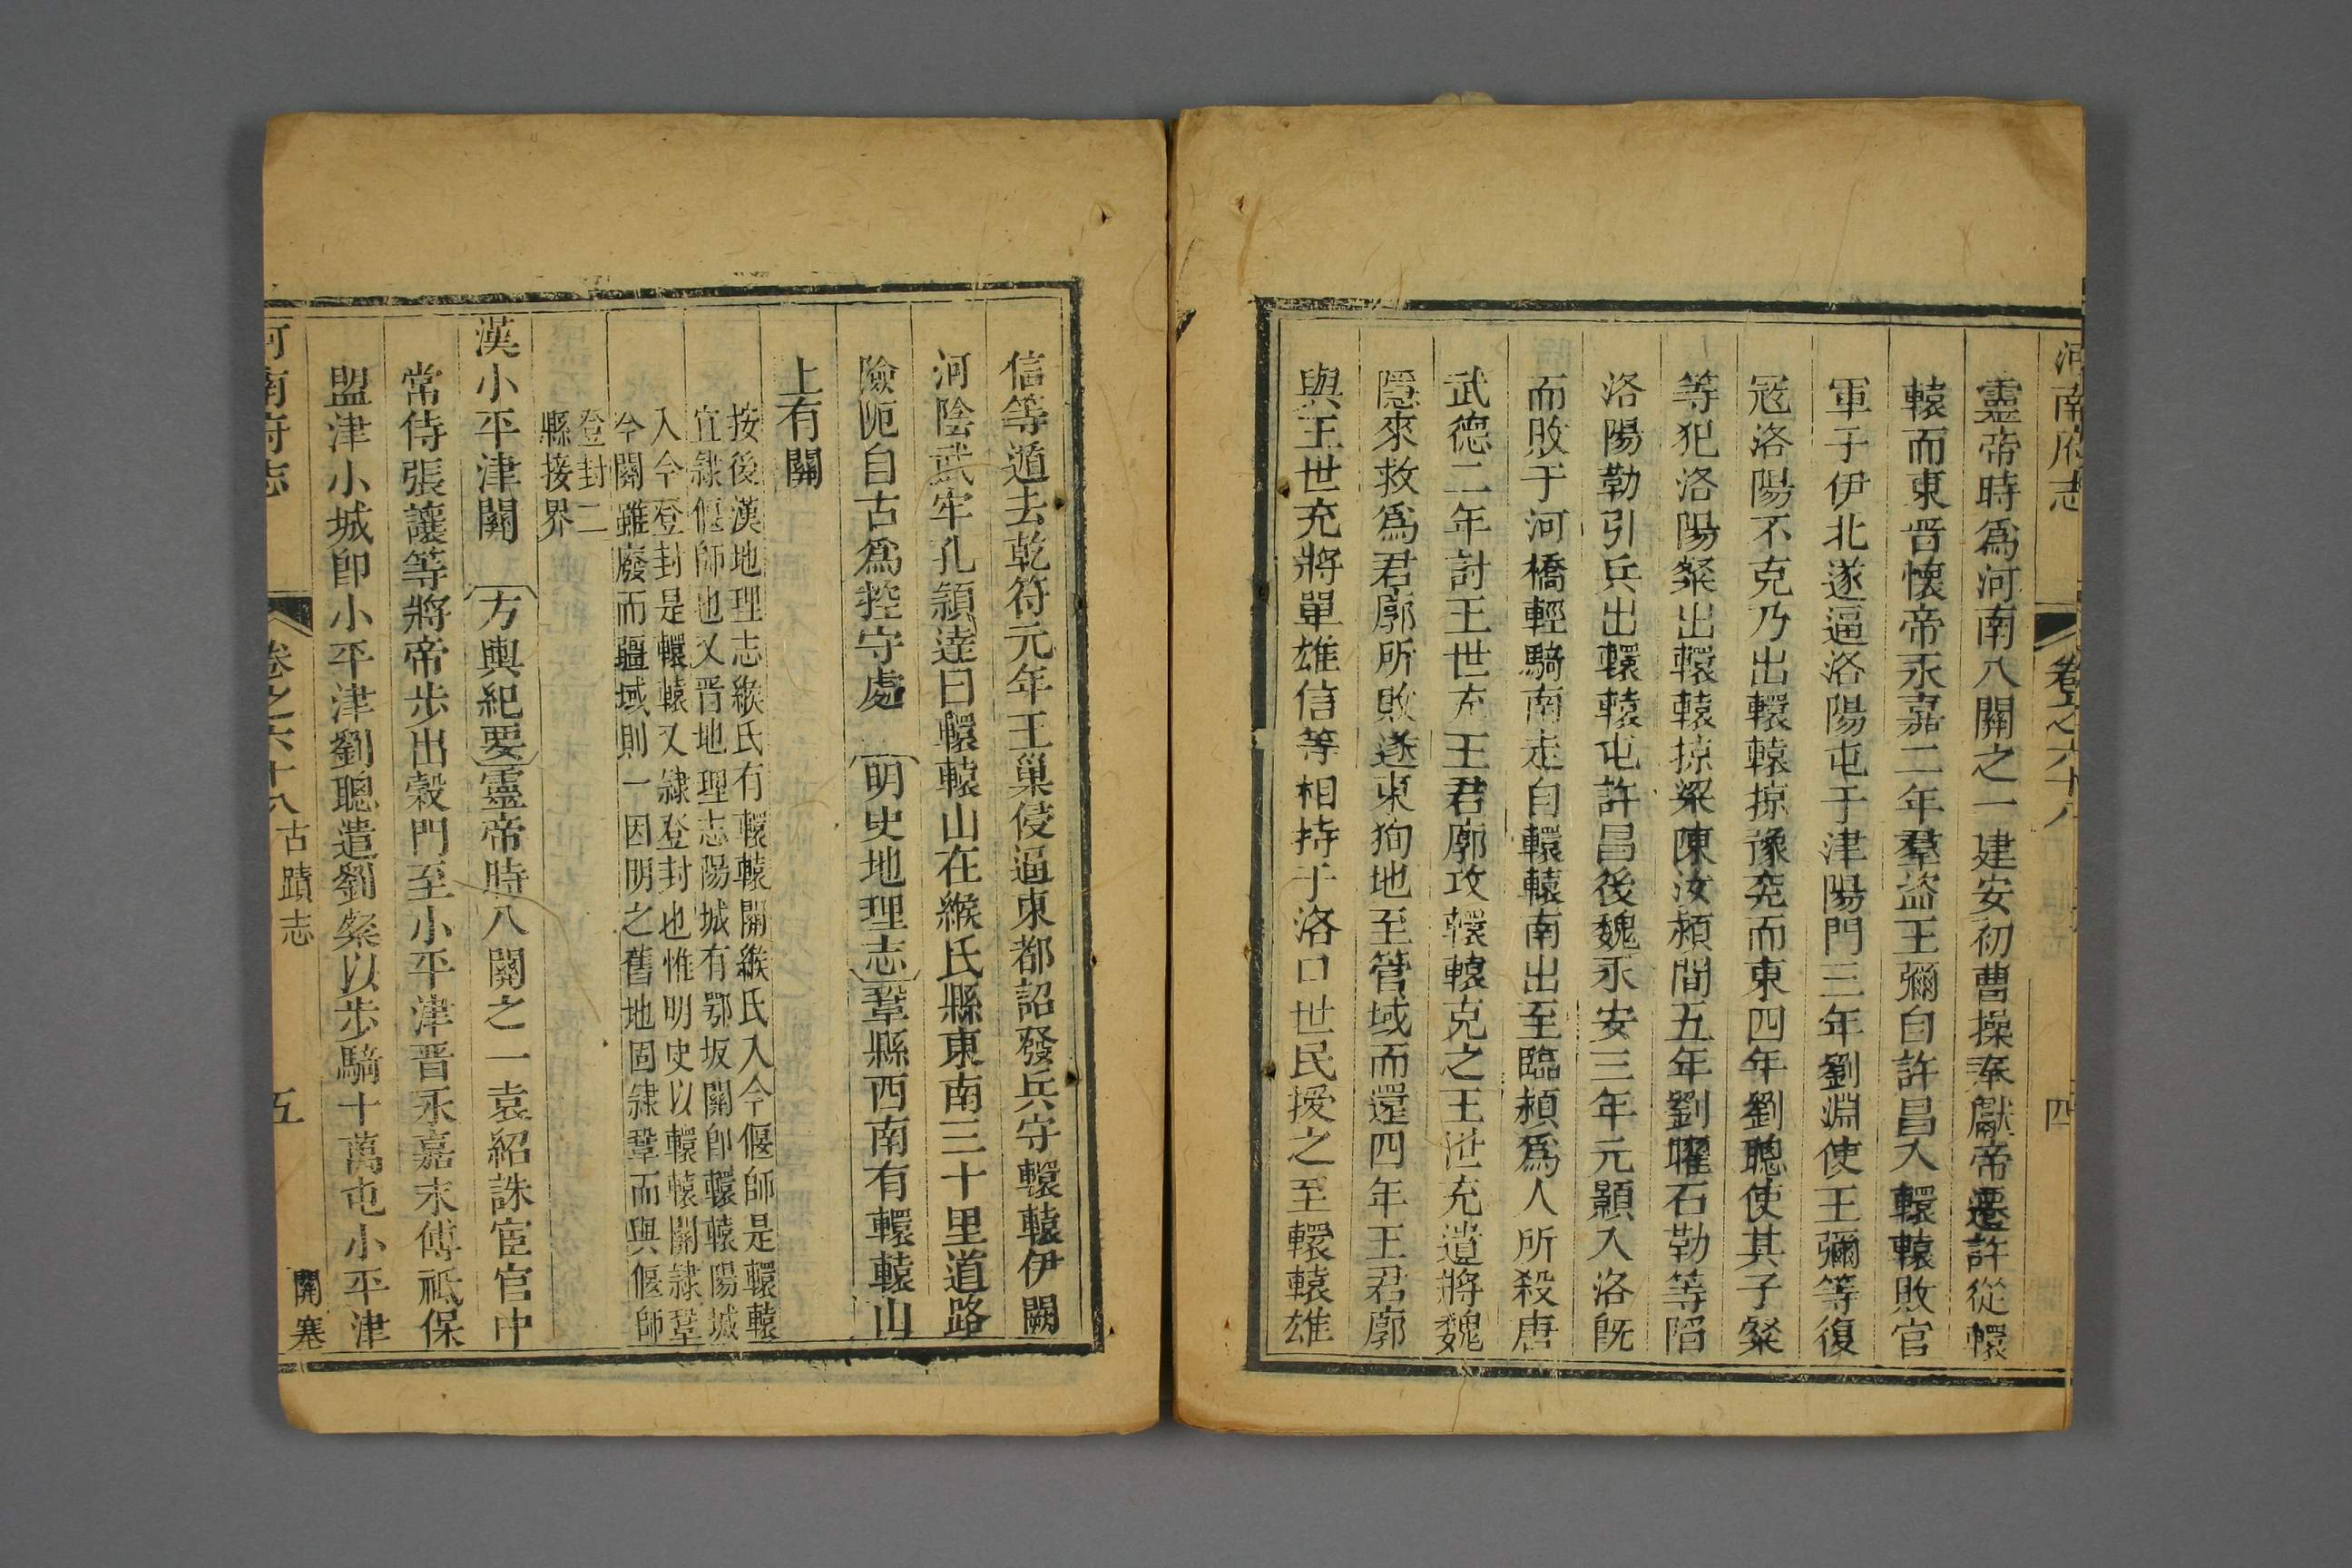 河南府志 卷之六十八 四
靈帝時爲河南八關之一建安初曹操奉獻帝遷許從轘
轅而東晋懷帝永嘉二年羣盗王彌自許昌入轘轅敗官
軍于伊北遂逼洛陽屯于津陽門三年劉淵使王彌等復
冦洛陽不克乃出轘轅掠豫兖而東四年劉聰使其子粲
等犯洛陽粲出轘轅掠梁陳汝潁間五年劉曜石勒等䧟
洛陽勒引兵出轘轅屯許昌後魏永安三年元顥入洛旣
而敗于河橋輕騎南走自轘轅南出至臨潁爲人所殺唐
武德二年討王世充王君廓攻轘轅克之王世充遣將魏
隱來救爲君廓所敗遂東狥地至管域而還四年王君廓
與王世充將單雄信等相持于洛口世民援之至轘轅雄
信等遁去乾符元年王巢侵逼東都詔發兵守轘轅伊闕
河陰武牢孔頴逹曰轘轅山在緱氏縣東南三十里道路
險阨自古爲控守處 明史地理志鞏縣西南有轘轅山
上有關
按後漢地理志緱氏有轘轅關緱氏入今偃師是轘轅
宜隷偃師也又晋地理志陽城有鄂坂關卽轘轅陽城
入今登封是轘轅又隷登封也惟明史以轘轅關隷鞏
今關雖廢而疆域則一因明之舊地固隷鞏而與偃師
登封二
縣接界
漢小平津關 方輿紀要靈帝時八關之一袁紹誅宦官中
常侍張讓等將帝步出穀門至小平津晋永嘉末傅祗保
盟津小城卽小平津劉聰遣劉粲以步騎十萬屯小平津
河南府志 卷之六十八 古蹟志 五 關塞